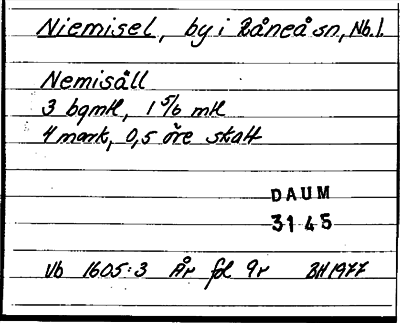 Niemisel, by i Råneå sn, Nb. l.
Nemisåll
3 bqmtl, 1 5/6 mtl
4 mark, 0,5 öre skatt
DAUM
3145
Vb 1605:3 År fol 9r BH 1977